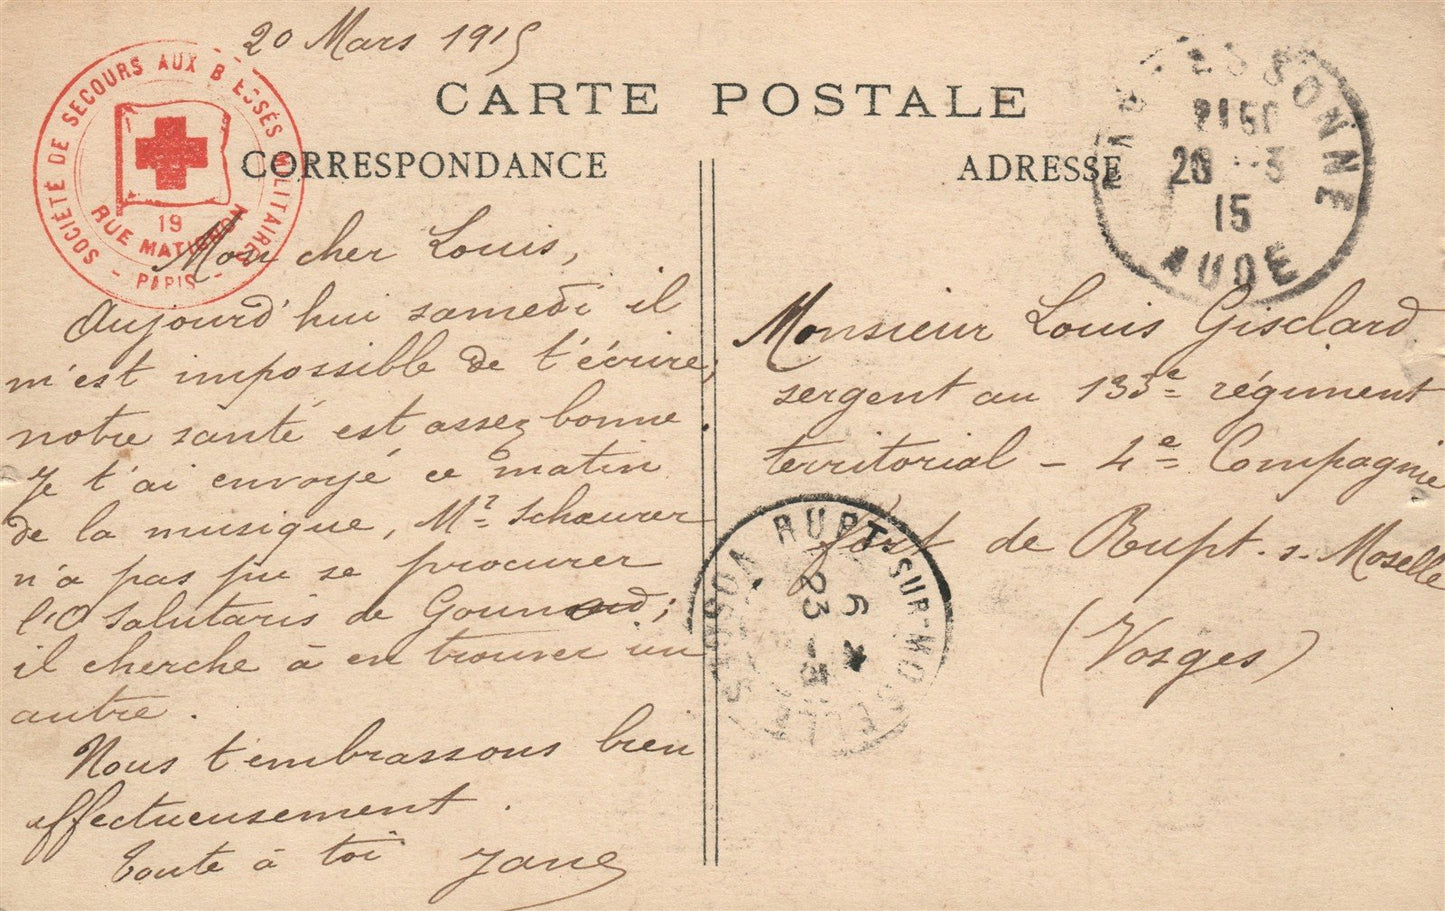 20 Mars 1915
CARTE POSTALE
CORRESPONDANCE
ADRESSE
SOCIÉTÉ DE SECOURS AUX B ESSÉS MILITAIRES
19
RUE MATIGNON
- PARIS -
Mon cher Louis,
Aujourd'hui samedi il
m'est impossible de t'écrire;
notre santé est assez bonne.
Je t'ai envoyé ce matin
de la musique, Mr Schaurer
n'a pas pu se procurer
l'O Salutaris de Gounod;
il cherche à en trouver un
autre.
Nous t'embrassons bien
affectueusement.
Toute à toi Jane
SONNE
21 50
20 - 3
15
AUDE
Monsieur Louis Gisclard
sergent au 133e régiment
territorial - 4e Compagnie
fort de Rupt. s. Moselle
(Vosges)
RUPT-SUR-MOSELLE
6
23 - 3
VOSGES